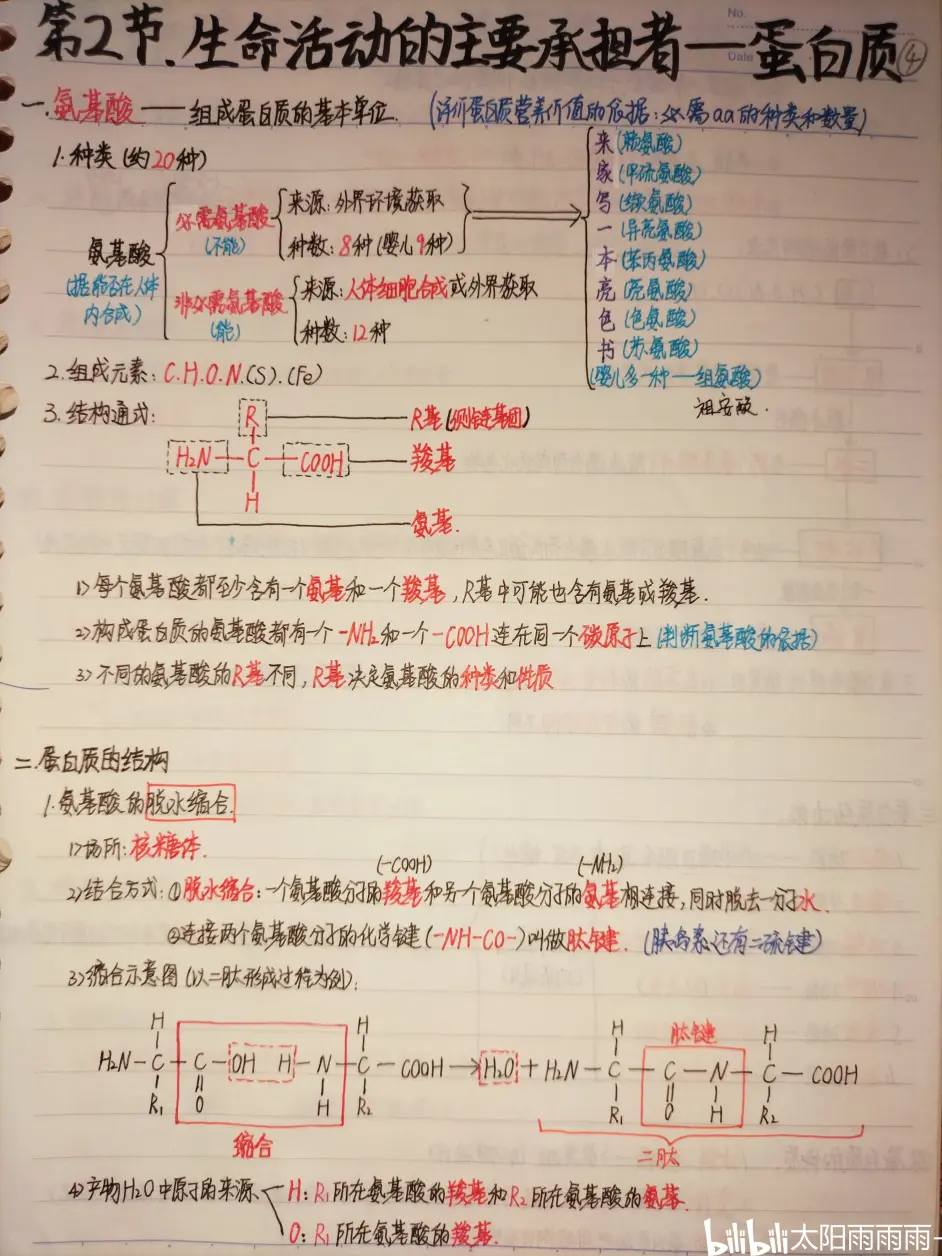 No.
Date
第2节.生命活动的主要承担者—蛋白质④
一.氨基酸——组成蛋白质的基本单位.(评价蛋白质营养价值的依据:必需aa的种类和数量)
1.种类(约20种)
氨基酸
(据能否在人体内合成)
必需氨基酸
(不能)
来源:外界环境获取
种数:8种(婴儿9种)
非必需氨基酸
(能)
来源:人体细胞合成或外界获取
种数:12种
来(赖氨酸)
家(甲硫氨酸)
写(缬氨酸)
一(异亮氨酸)
本(苯丙氨酸)
亮(亮氨酸)
色(色氨酸)
书(苏氨酸)
(婴儿多一种—组氨酸)
2.组成元素:C.H.O.N.(S).(Fe)
3.结构通式:
R
R基(侧链基团)
H₂N—C—COOH
羧基
H
氨基.
1)每个氨基酸都至少含有一个氨基和一个羧基,R基中可能也含有氨基或羧基.
2)构成蛋白质的氨基酸都有一个-NH₂和一个-COOH连在同一个碳原子上(判断氨基酸的依据)
3)不同的氨基酸的R基不同,R基决定氨基酸的种类和性质
二.蛋白质的结构
1.氨基酸的脱水缩合.
1)场所:核糖体.
(-COOH) (-NH₂)
2)结合方式:①脱水缩合:一个氨基酸分子的羧基和另一个氨基酸分子的氨基相连接,同时脱去一分子水.
②连接两个氨基酸分子的化学键(-NH-CO-)叫做肽键.(胰岛素还有二硫键)
3)缩合示意图(以二肽形成过程为例):
H H H 肽键 H
H₂N—C—C—OH H—N—C—COOH→H₂O+H₂N—C—C—N—C—COOH
R₁ O H R₂ R₁ O H R₂
缩合 二肽
4)产物H₂O中原子的来源
H:R₁所在氨基酸的羧基和R₂所在氨基酸的氨基.
O:R₁所在氨基酸的羧基.
bilibili 太阳雨雨雨